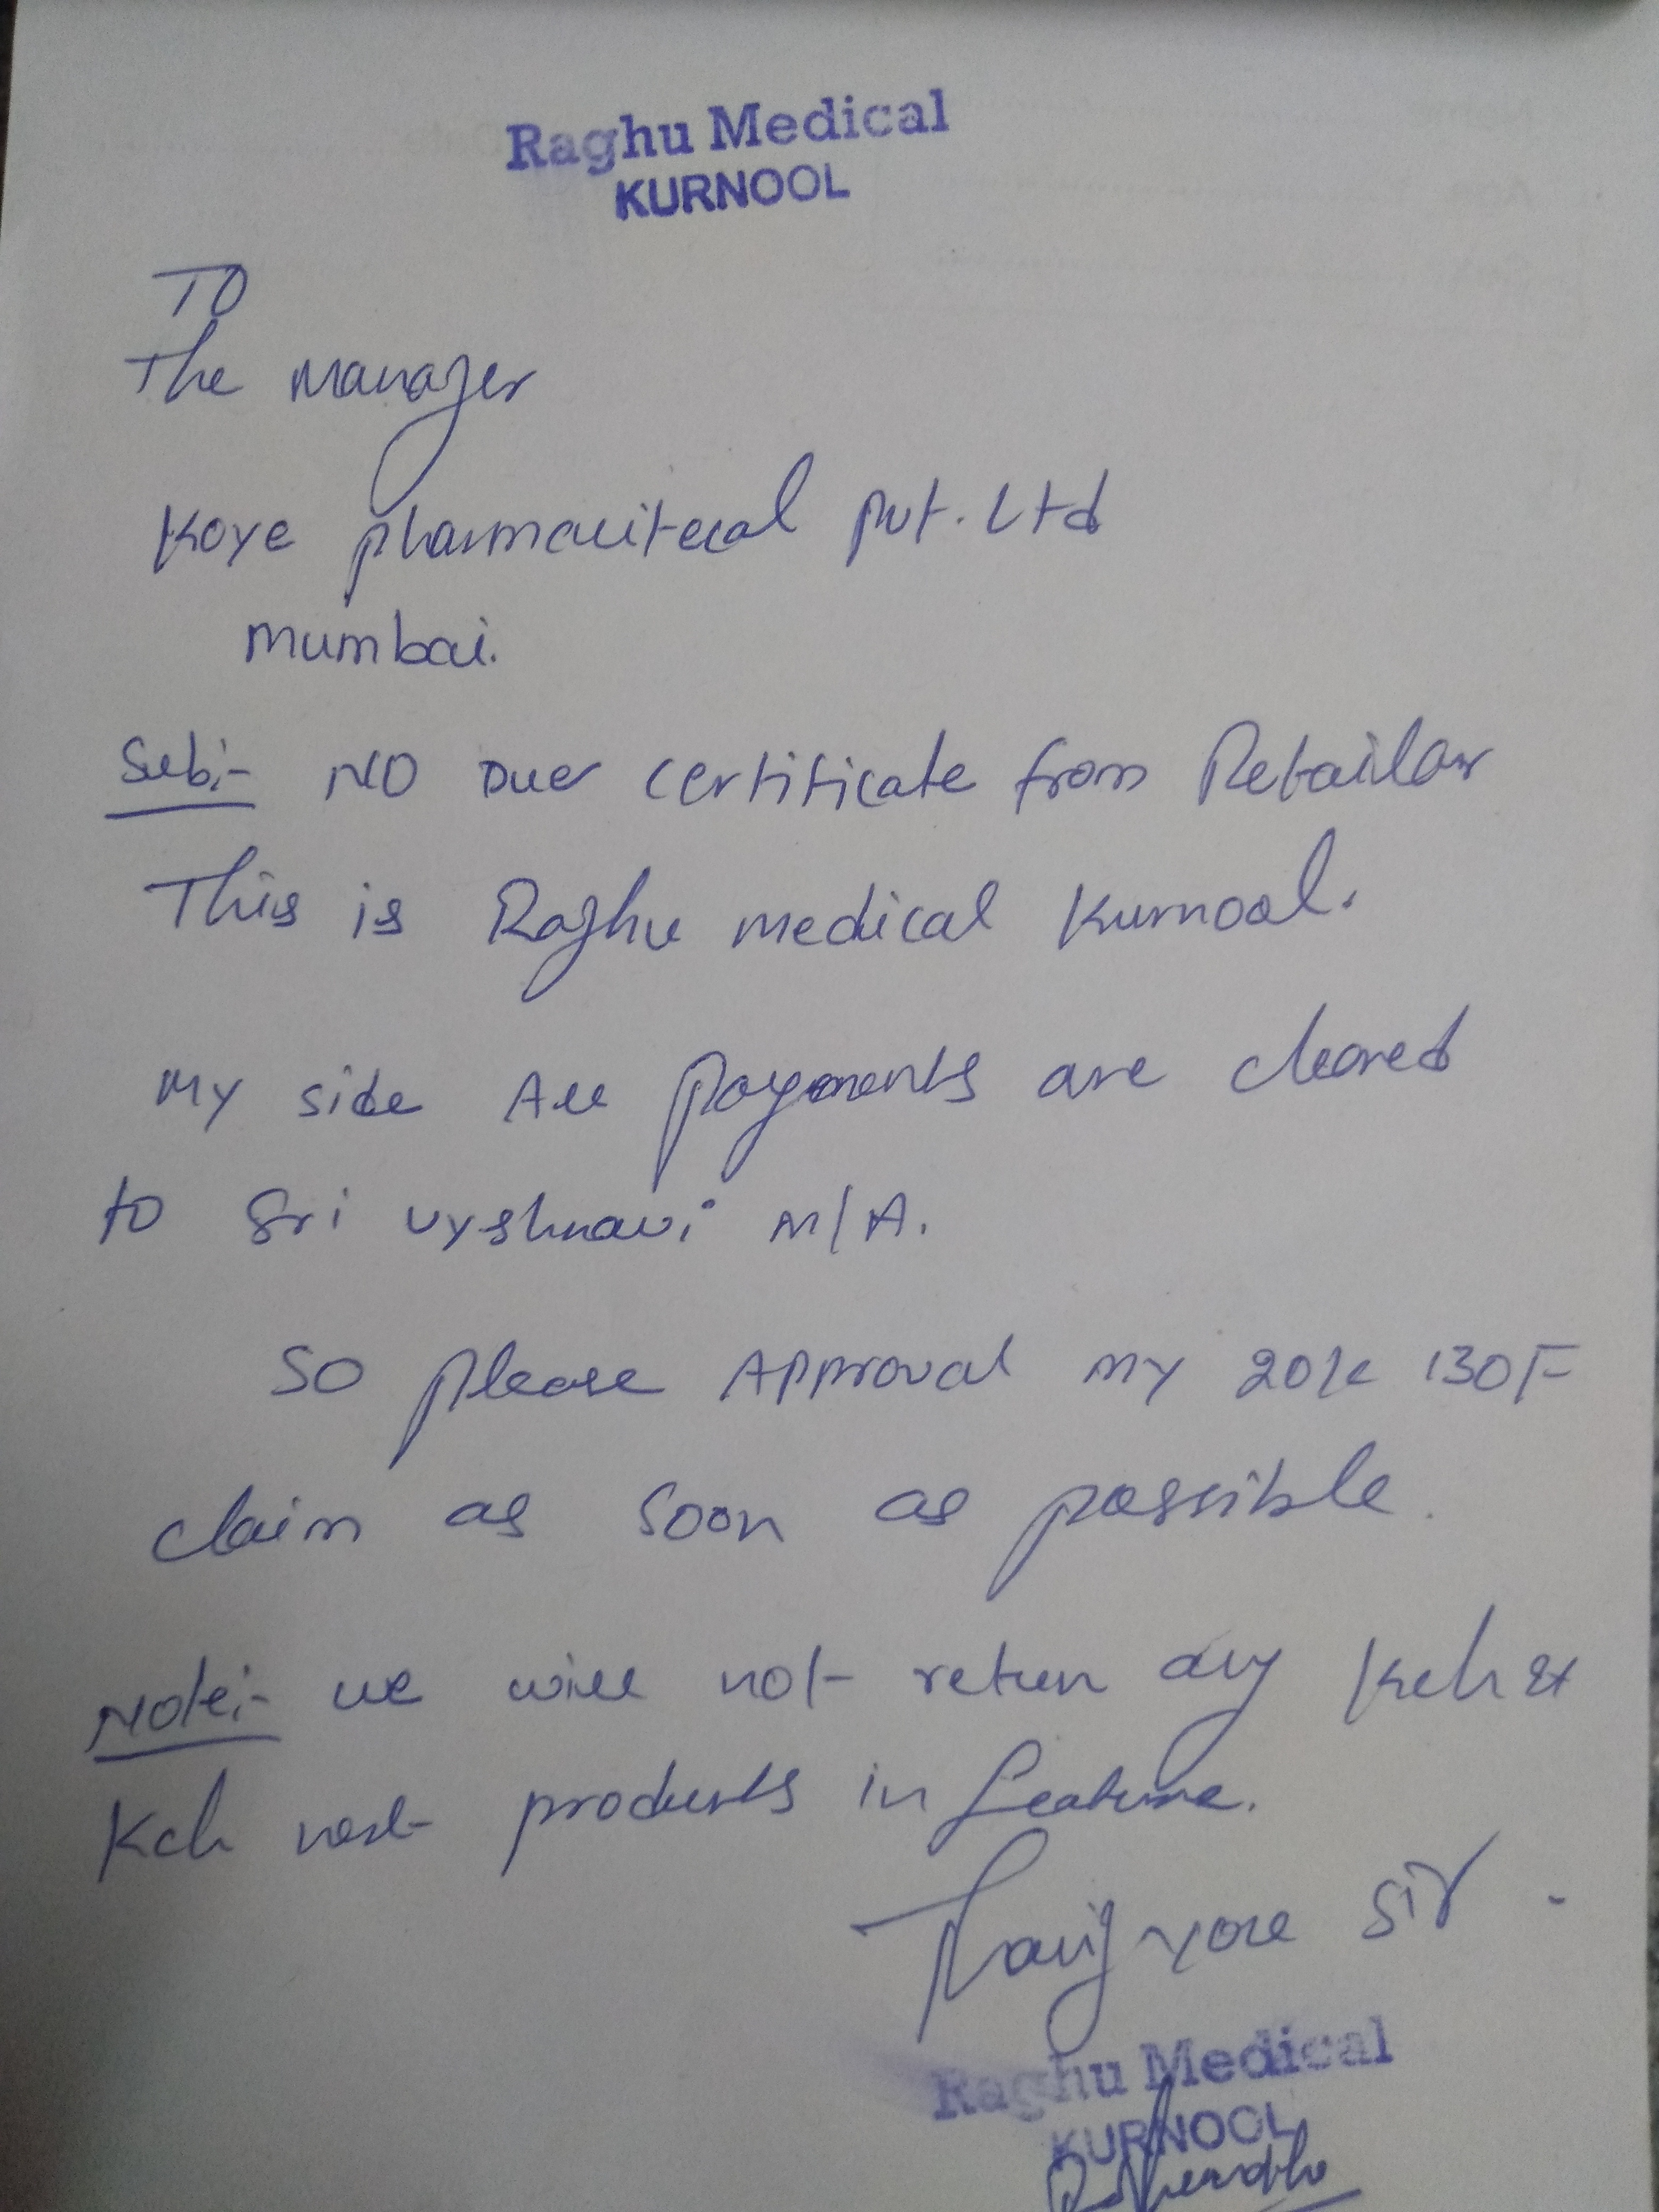 Raghu Medical
KURNOOL
TO
The Manager
Koye pharmacitecal Pvt. Ltd
Mumbai.
Sub:- NO Due certificate from Retailar
This is Raghu medical Kurnool.
My side All payments are cleared
to Sri vyshnavi M/A.
SO please Approval my 20% 130F
claim as soon as possible.
Note:- we will not return any Kch &
Kch next products in feature.
sir.
Raghu Medical
KURNOOL